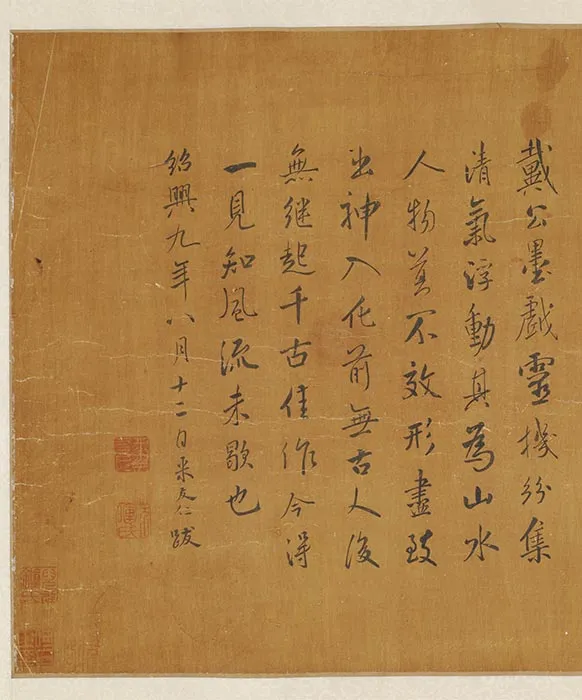 戴公墨戲靈機紛集
清氣浮動其為山水
人物莫不效形盡致
出神入化前無古人後
無繼起千古佳作今得
一見知風流未歇也
紹興九年八月十二日米友仁跋